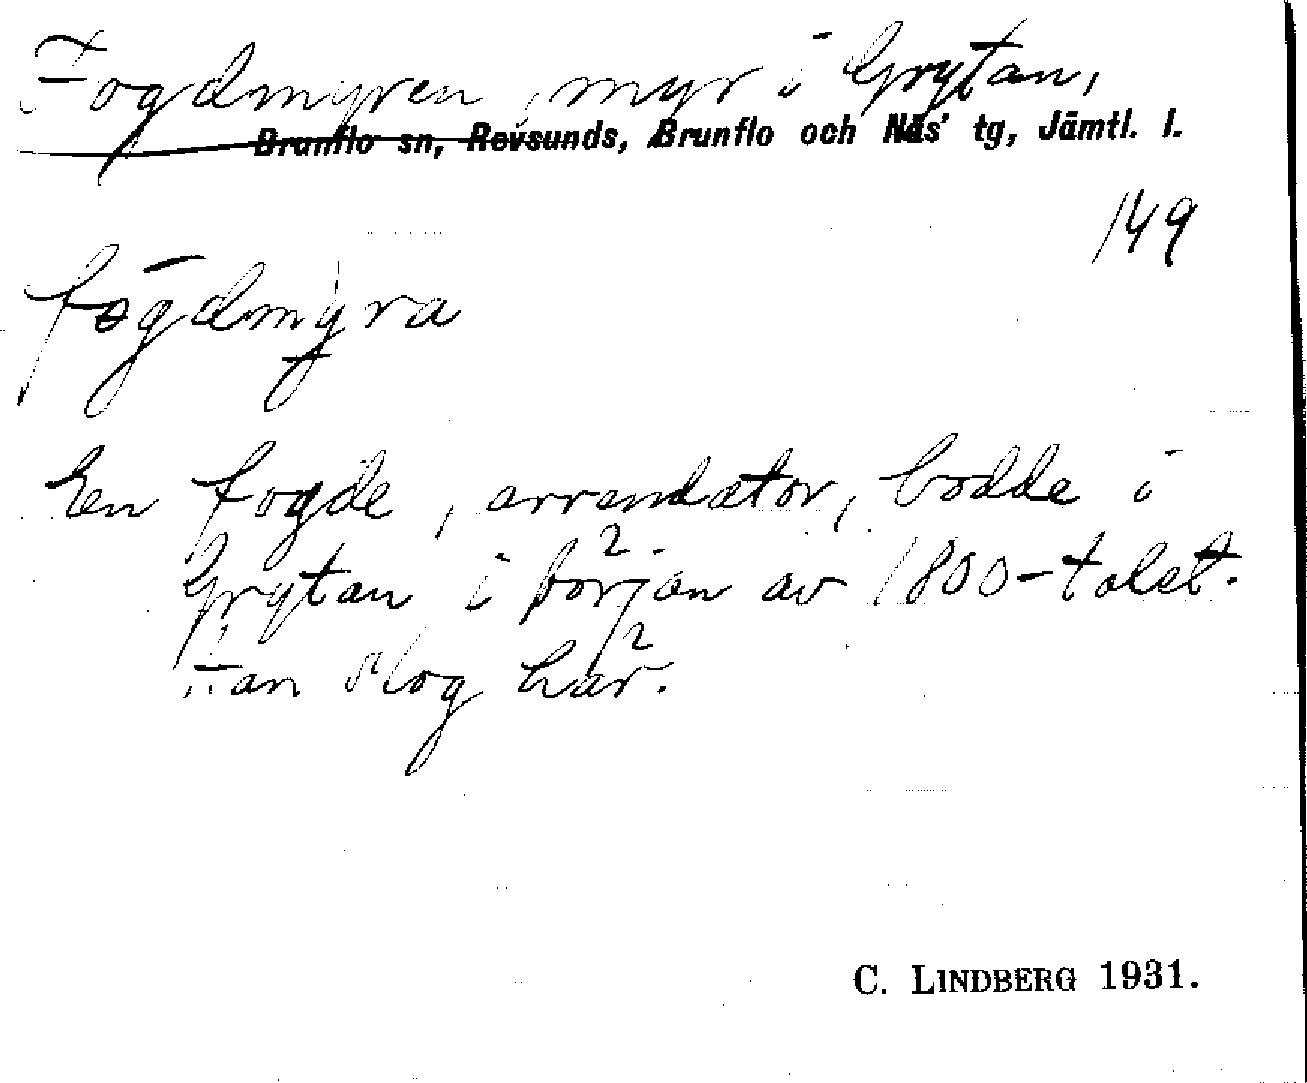 Fogdmyren, myr i Grytan,
Brunflo sn, Revsunds, Brunflo och Näs' tg, Jämtl. l.
149
fōgdmyra
En fogde, arrendator, bodde i
Grytan i början av 1800-talet.
Han slog här.
C. LINDBERG 1931.